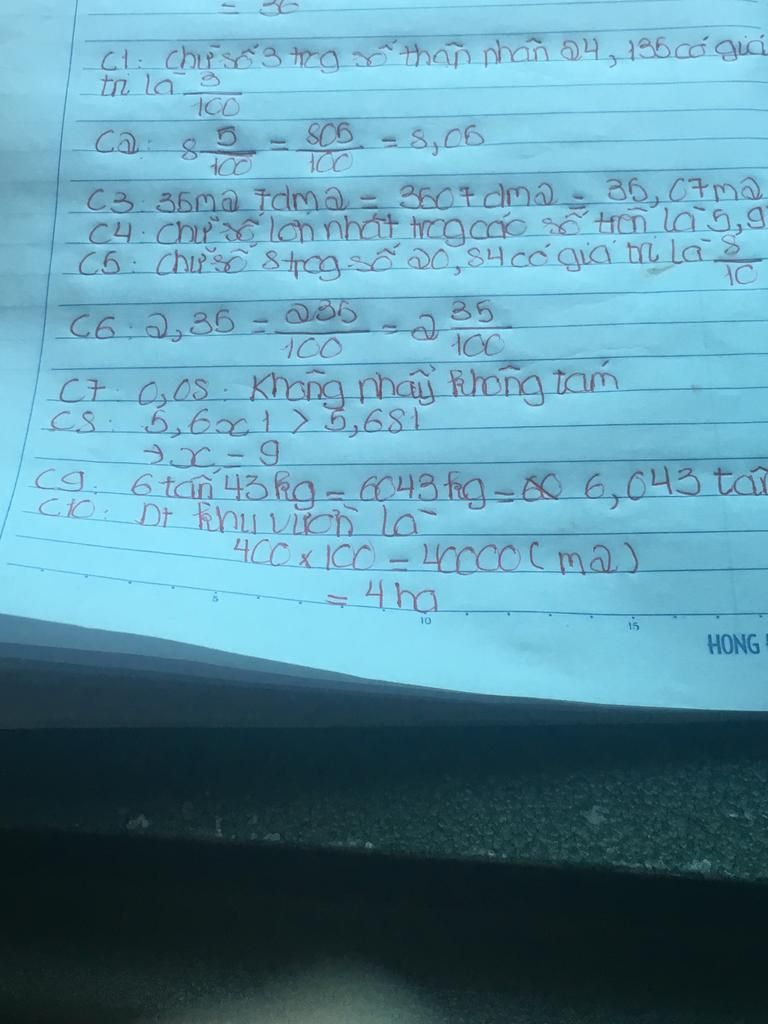 = 36
C1: Chữ số 3 trg số thân nhân 24, 135 có giá
trị là 3/100
C2: 8 5/100 = 805/100 = 8,05
C3: 35m2 7dm2 = 3507dm2 = 35,07m2
C4: Chữ số lớn nhất trg các số trên là 5,9
C5: Chữ số 8 trg số 20,84 có giá trị là 8/10
C6: 2,35 = 235/100 = 2 35/100
C7: 0,08: Không phẩy không tám
C8: 5,6x1 > 5,681
→ x = 9
C9: 6 tấn 43kg = 6043kg = 6,043 tấn
C10: Dt khu vườn là
400 x 100 = 40000 (m2)
= 4 ha
5 10 15
HONG